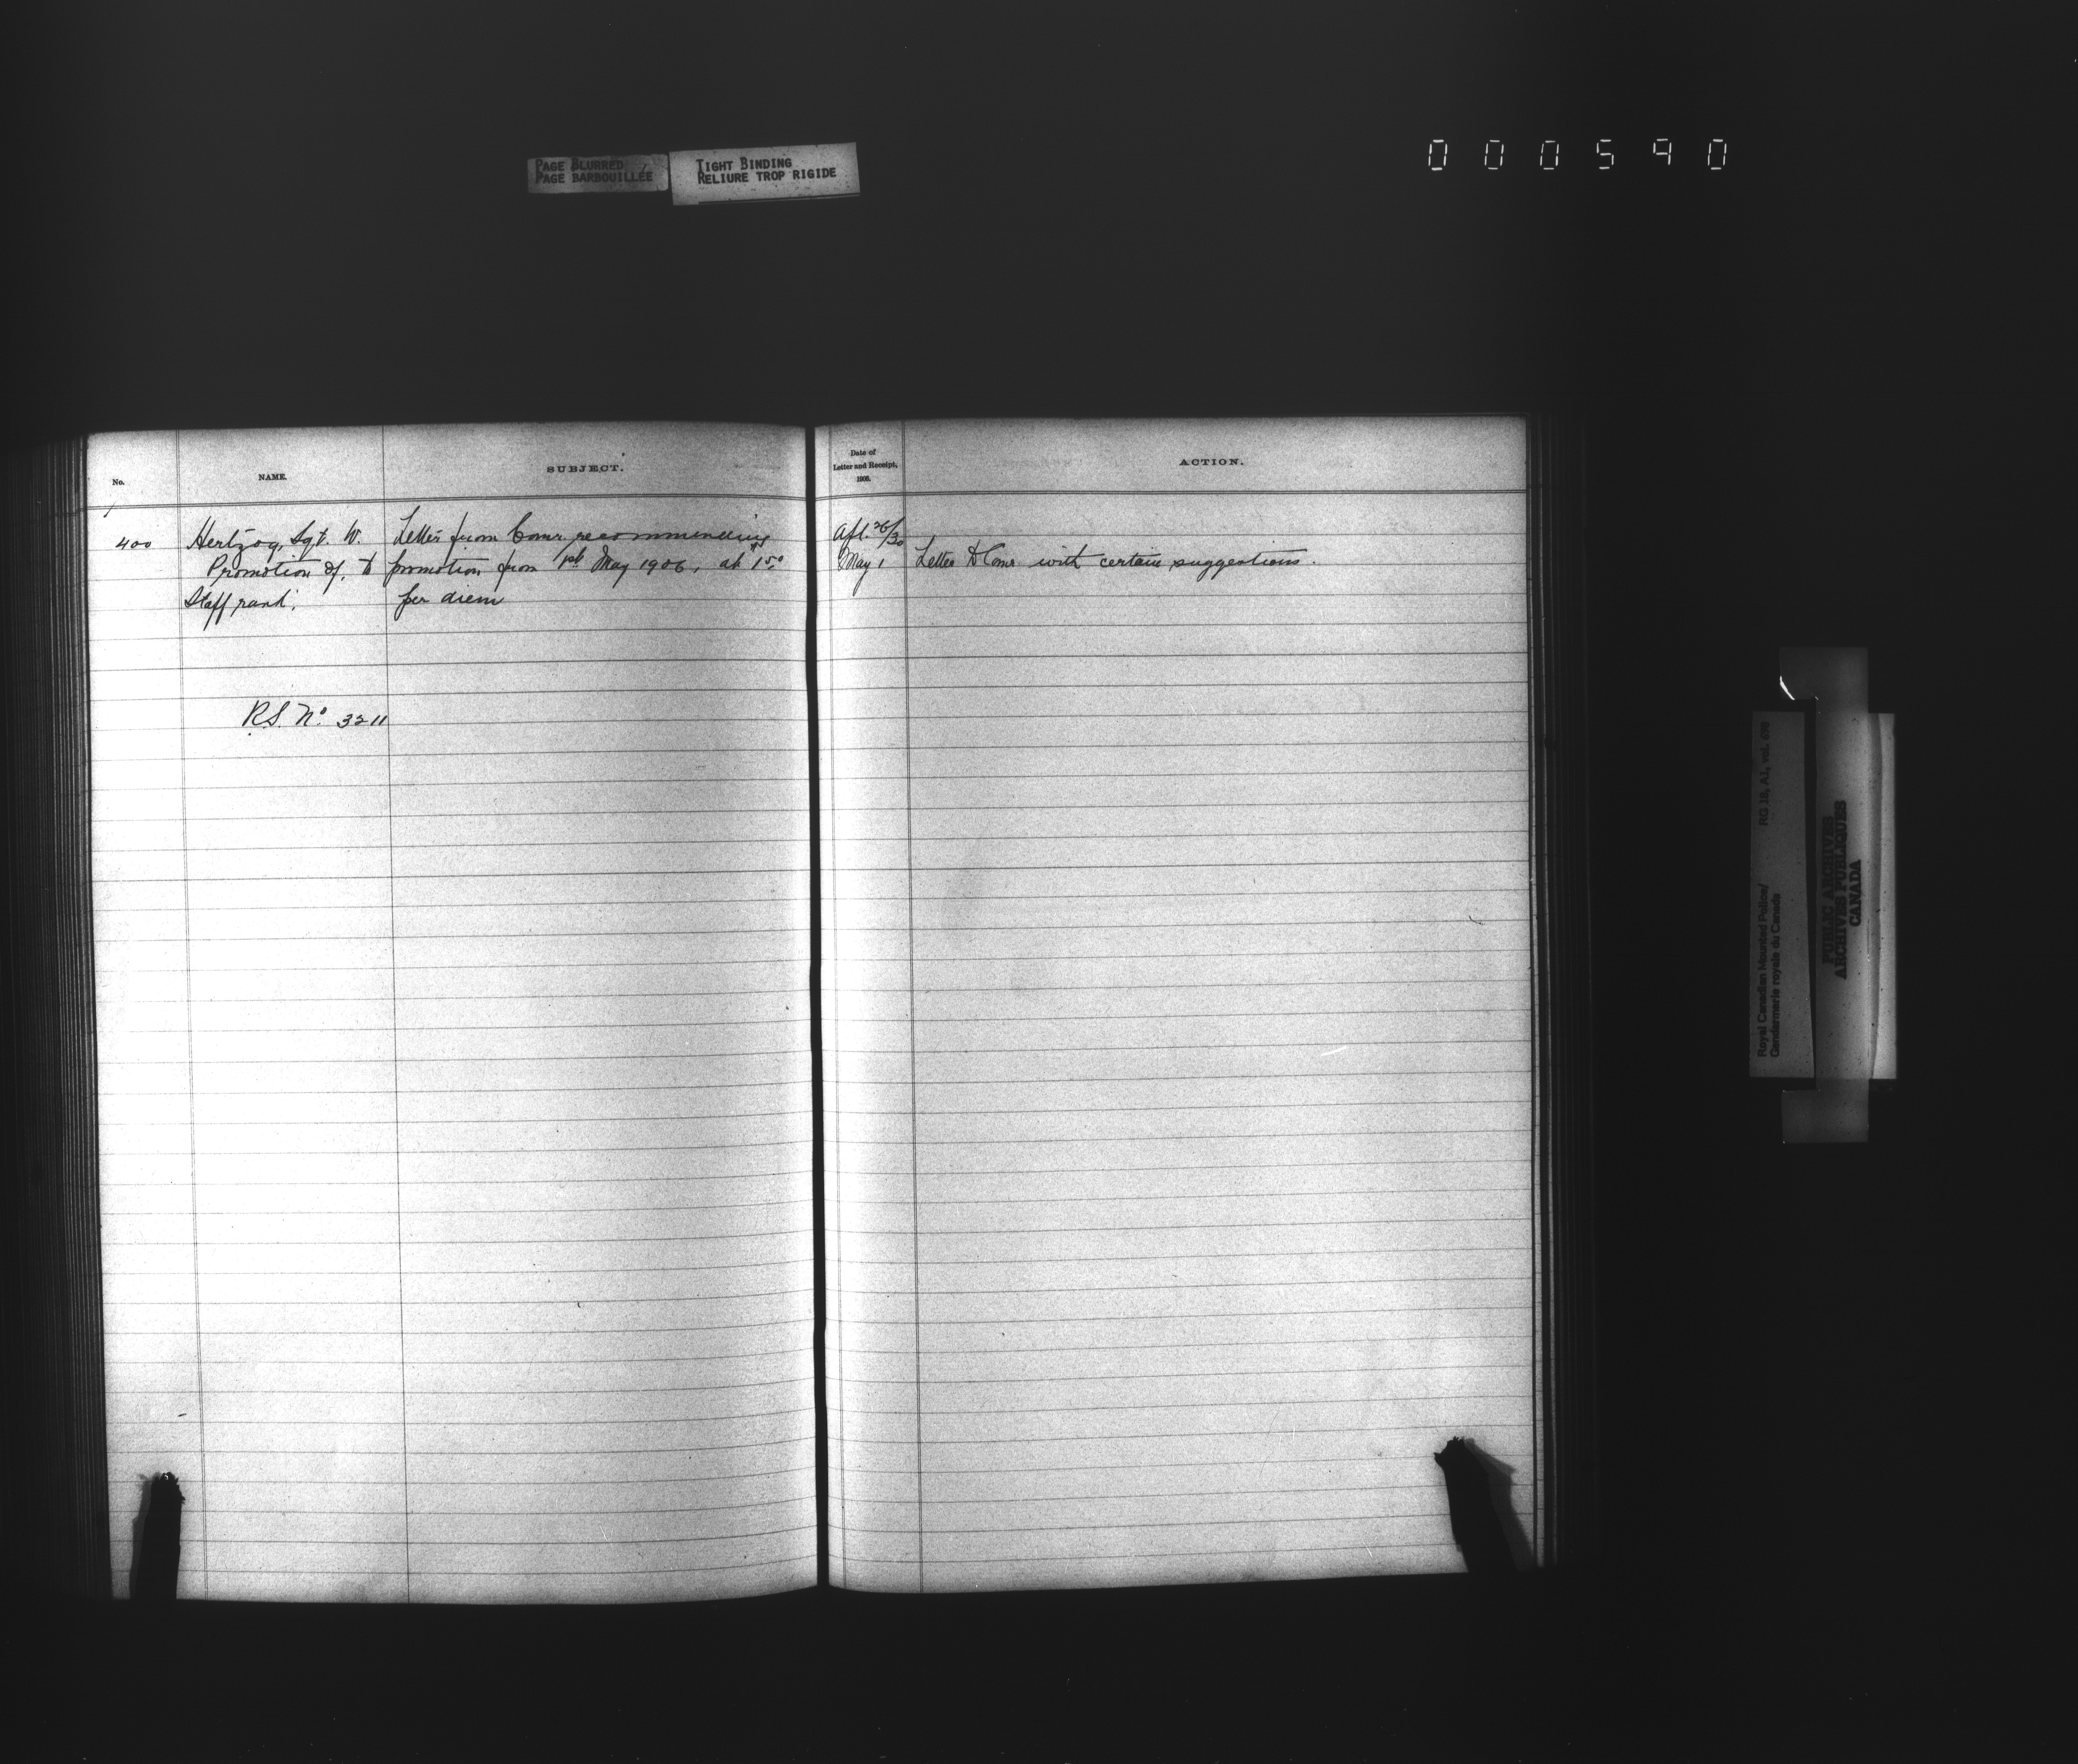 PAGE BLURRED
PAGE BARBOUILLÉE
TIGHT BINDING
RELIURE TROP RIGIDE
000590
No.
NAME.
SUBJECT.
Date of
Letter and Receipt,
1906.
ACTION.
400
Hertzog, Sgt. W.
Promotion of, to
Staff rank.
Letter from Comr recommending
promotion from 1st May 1906, at $1.50
per diem
Apl. 26/30
May 1
Letter to Comr. with certain suggestions.
R.S. No. 3211
Royal Canadian Mounted Police/
Gendarmerie royale du Canada
RG 18, A1, vol. 698
PUBLIC ARCHIVES
ARCHIVES PUBLIQUES
CANADA